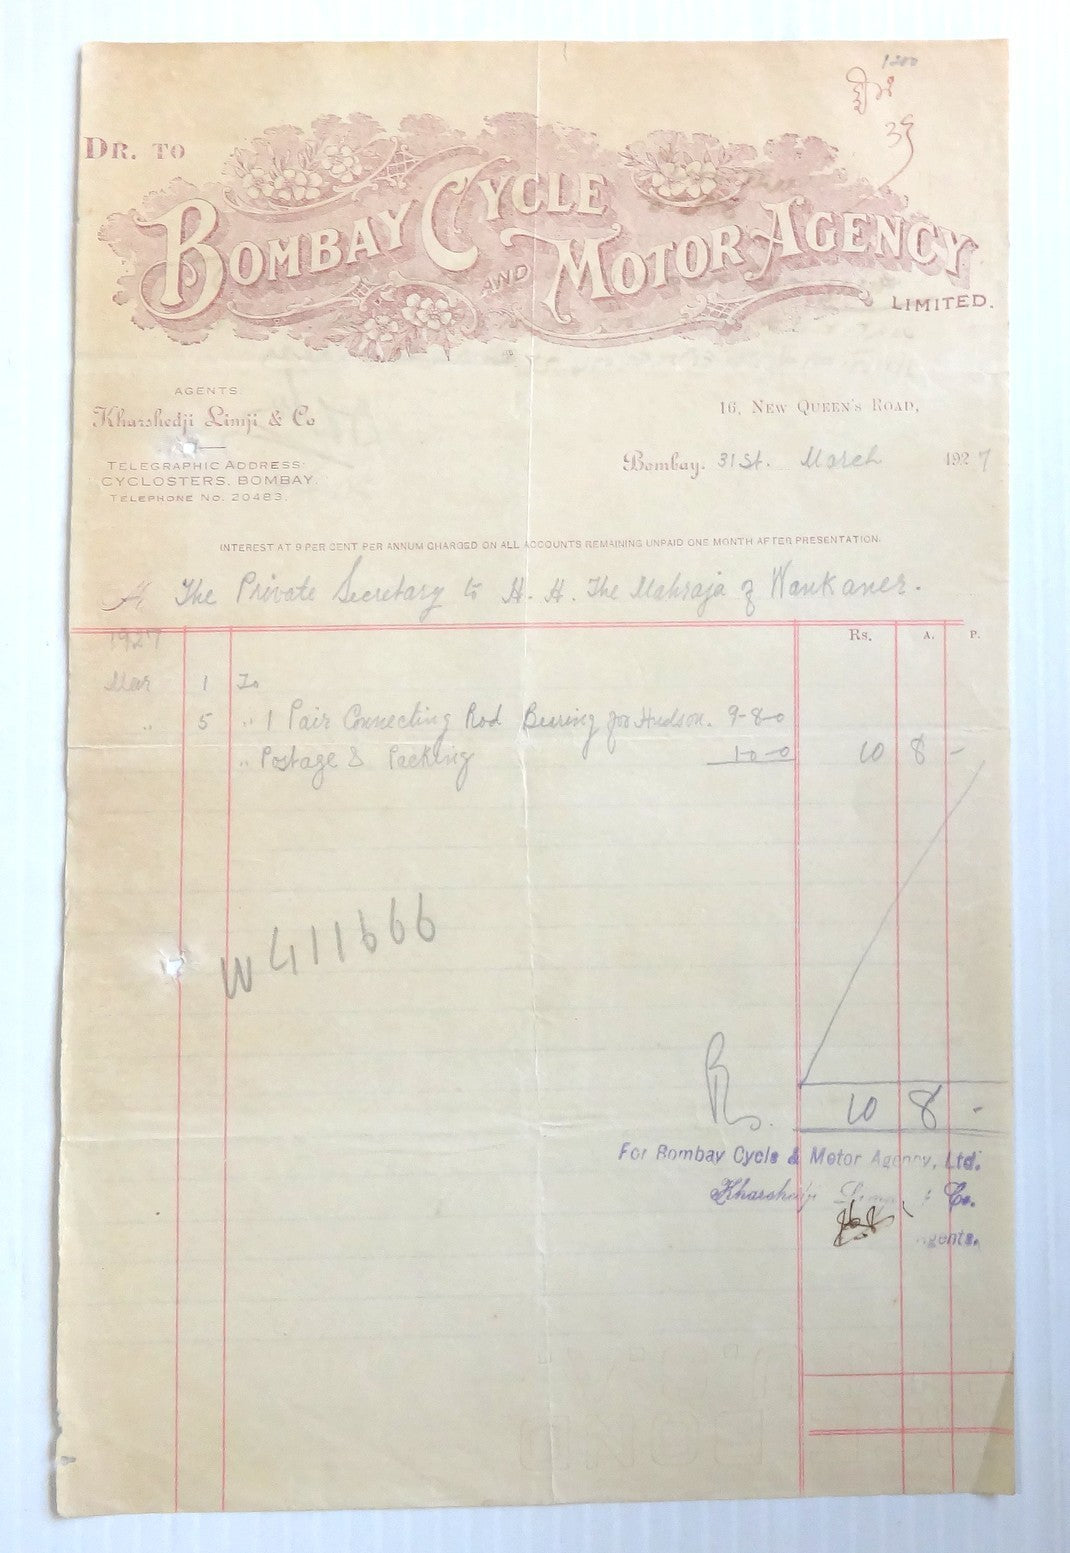 1200
35
DR. TO
BOMBAY CYCLE AND MOTOR AGENCY LIMITED.
AGENTS:
Kharshedji Limji & Co
16, NEW QUEEN'S ROAD,
TELEGRAPHIC ADDRESS:
CYCLOSTERS, BOMBAY.
TELEPHONE NO. 20483.
Bombay. 31st. March 1927
INTEREST AT 9 PER CENT PER ANNUM CHARGED ON ALL ACCOUNTS REMAINING UNPAID ONE MONTH AFTER PRESENTATION.
The Private Secretary to H. H. The Mahraja of Wankaner.
1927 Rs. A. P.
Mar 1 To
" 5 " 1 Pair Connecting Rod Bearing for Hudson. 9-8-0
" Postage & Packing 1-0-0 10 8 -
W411666
Rs. 10 8 -
For Bombay Cycle & Motor Agency, Ltd.
Kharshedji Limji & Co.
Agents.